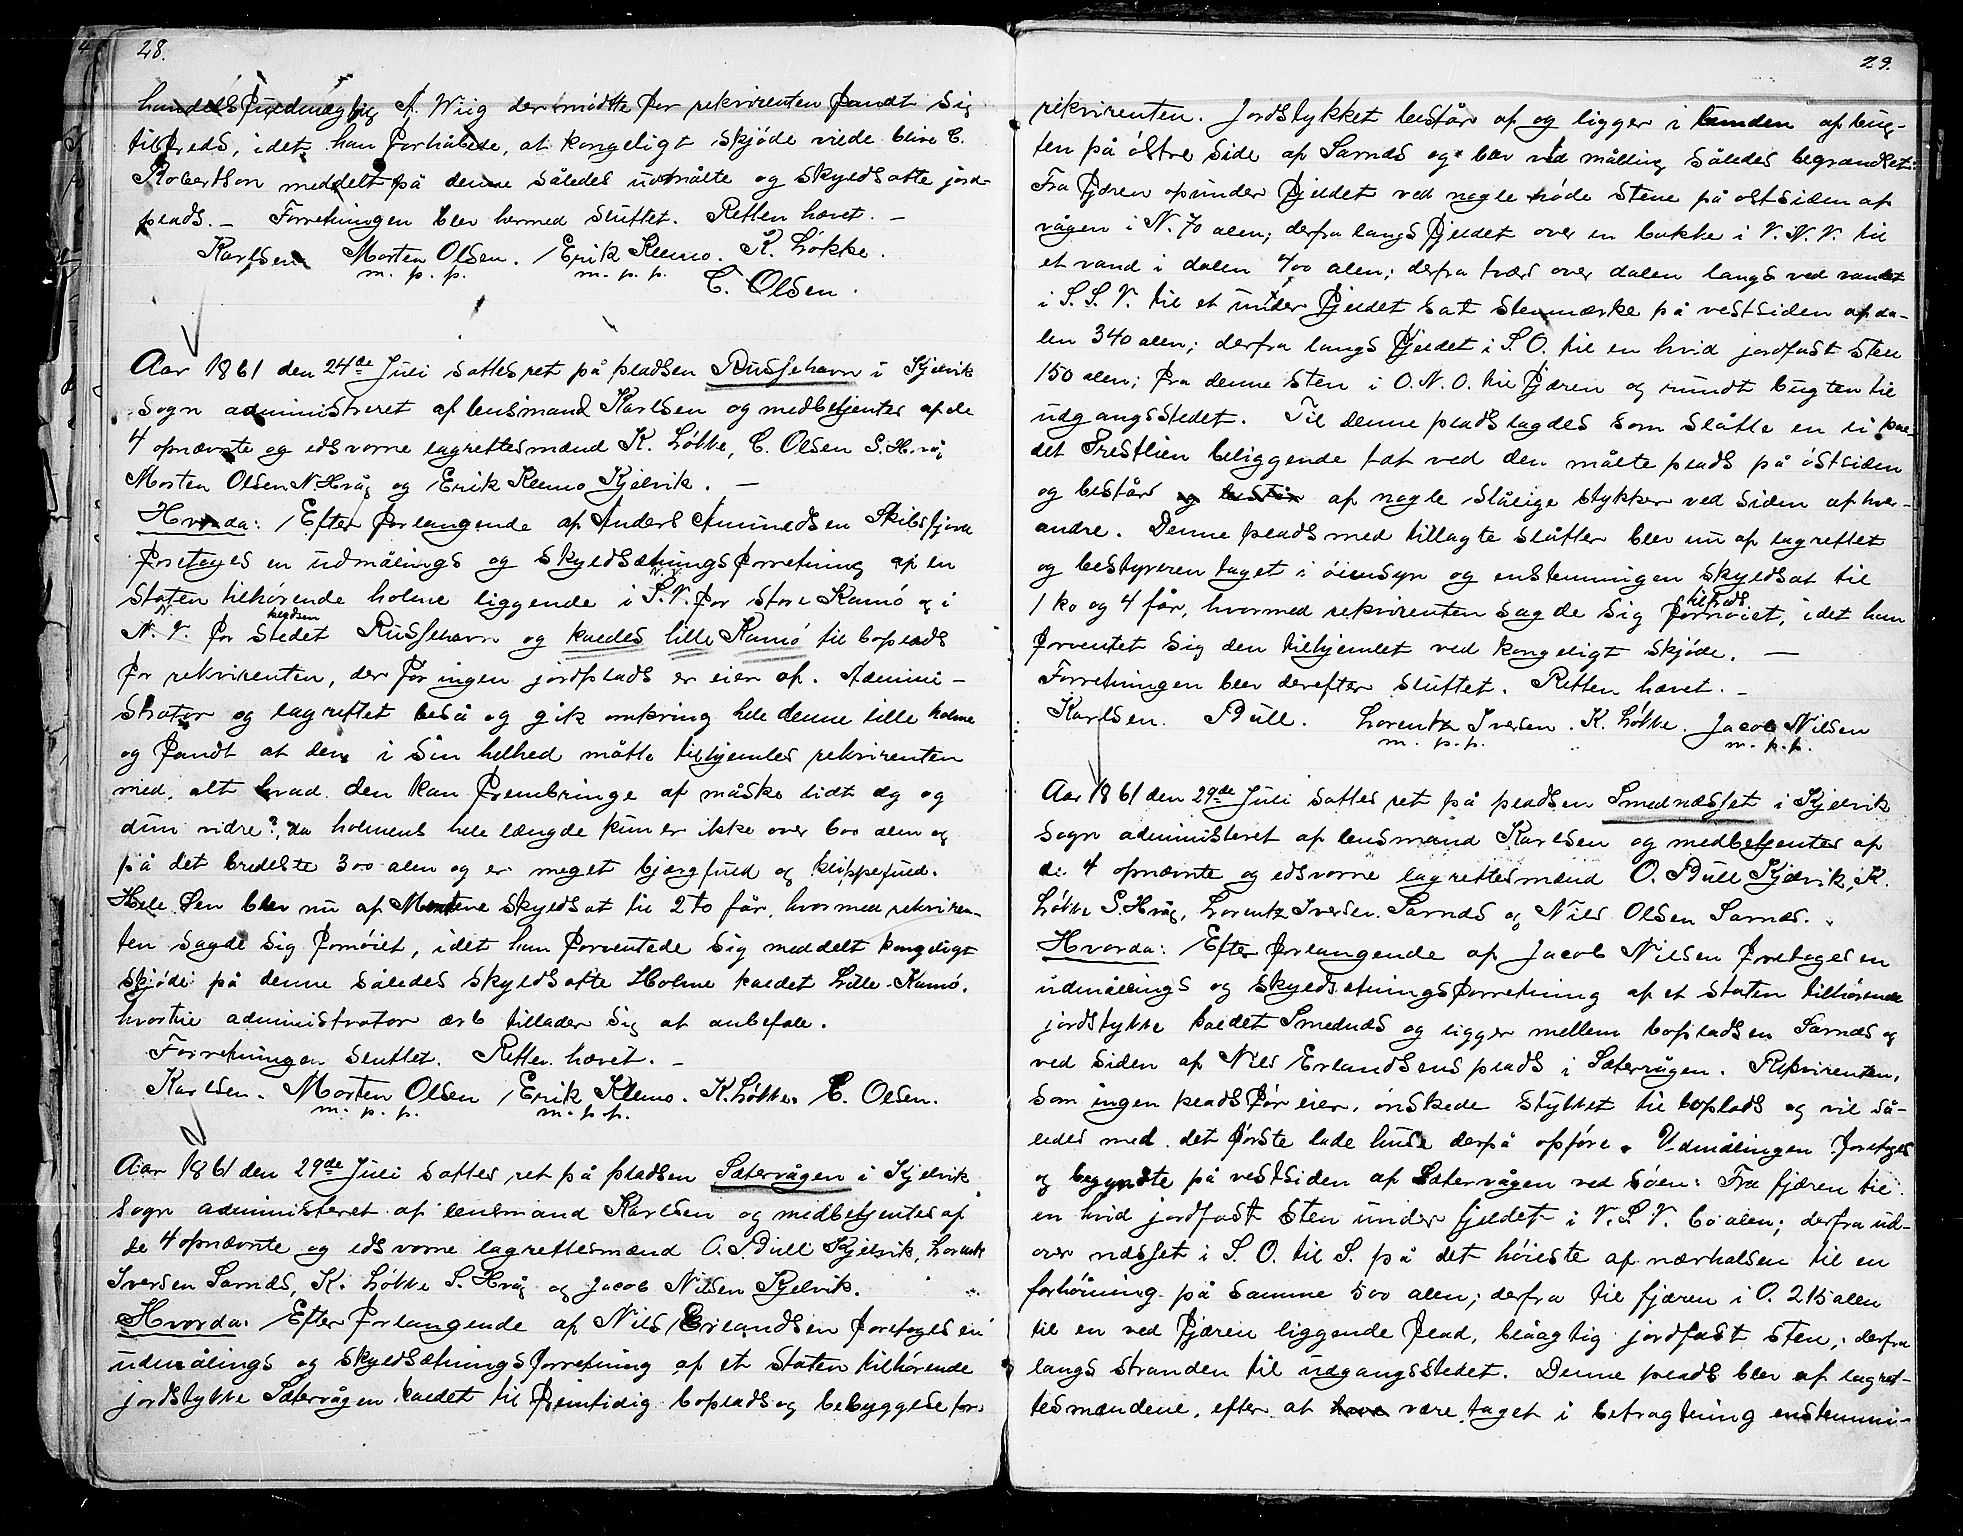 28.
handelsfuldmægtig A. Wiig der mødtte for rekvirenten fandt sig
tilfreds, idet han forhåbede, at kongeligt skjøde vilde blive C.
Robertson meddelt på denne således udmålte og skyldsatte jord-
plads. — Forretningen blev hermed sluttet. Retten hævet. —
Karlsen Morten Olsen. Erik Klemo. K. Løkke.
m. p. p. m. p. p.
C. Olsen.
Aar 1861 den 24de Juli sattes ret på pladsen Russehavn i Kjelvik
sogn administreret af lensmand Karlsen og medbetjentes af de
4 opnævnte og edsvorne lagrettesmænd K. Løkke, C. Olsen S. H.våg
Morten Olsen N Hvåg og Erik Klemo Kjelvik. —
Hvorda: Efter forlangende af Anders Amundsen Skibsfjord
foretoges en udmålings og skyldsætningsforretning af en
staten tilhørende holme liggende i S.V. for store Kamø og i
N. V. for stedet pladsen Russehavn og kaldes lille Kamø til boplads
for rekvirenten, der før ingen jordplads er eier af. Admini-
strator og lagrettet beså og gik omkring hele denne lille holme
og fandt at den i sin helhed måtte tilhjemles rekvirenten
med alt hvad den kan frembringe af måske lidt æg og
dun vidre?, da holmens hele længde kun er ikke over 600 alen og
på det bredeste 300 alen og er meget bjergfuld og klippefuld.
Hele den blev nu af Mændene skyldsat til 2 to får, hvormed rekviren-
ten sagde sig fornøiet, idet han forventede sig meddelt kongeligt
skjøde på denne således skyldsatte Holme kaldet Lille-Kamø.
hvortil administrator ærb tillader sig at anbefale.
Forretningen sluttet. Retten hævet. —
Karlsen. Morten Olsen Erik Klemo. K. Løkke. C. Olsen.
m. p. p. m. p. p.
Aar 1861 den 29de Juli sattes ret på pladsen Sætervågen i Kjelvik
sogn administeret af lensmand Karlsen og medbetjentes af
de 4 opnævnte og edsvorne lagrettesmænd O. Bull Kjelvik, Lorentz
Iversen Sarnæs, K. Løkke S. Hvåg og Jacob Nilsen Kjelvik.
Hvorda: Efter forlangende af Nils Erlandsen foretoges en
udmålings og skyldsætningsforretning af et staten tilhørende
jordstykke Sætervågen kaldet til fremtidig boplads og bebyggelse for
29.
rekvirenten. Jordstykket består af og ligger i bunden af bug-
ten på østre side af Sarnæs og blev ved måling således begrændset:
Fra fjæren opunder fjeldet ved nogle røde stene på ostsiden af
vågen i N. 70 alen; derfra langs fjeldet over en bakke i V. N. V. til
et vand i dalen 400 alen; derfra tværs over dalen langs ved vandet
i S. S. V. til et under fjeldet sat stenmærke på vestsiden af da-
len 340 alen; derfra langs fjeldet i S. O. til en hvid jordfast sten
150 alen; fra denne sten i O. N. O. til fjæren og rundt bugten til
udgangsstedet. Til denne plads lagdes som slåtte en li kal-
det Prestlien beliggende tæt ved den målte plads på østsiden
og består og består af nogle slålige stykker ved siden af hver-
andre. Denne plads med tillagte slåtter blev nu af lagrettet
og bestyreren taget i øiensyn og enstemmingen skyldsat til
1 ko og 4 får, hvormed rekvirenten sagde sig fornøiet, tilfreds idet han
forventet sig den tilhjemlet ved kongeligt skjøde. —
Forretningen blev derefter sluttet. Retten hævet. —
Karlsen. Bull. Lorentz Iversen. K. Løkke. Jacob Nilsen
m. p. p. m. p. p.
Aar 1861 den 29de Juli sattes ret på pladsen Smednæsset i Kjelvik
sogn administeret af lensmand Karlsen og medbetjentes af
de 4 opnævnte og edsvorne lagrettesmænd O. Bull Kjelvik, K.
Løkke S. Hvåg, Lorentz Iversen Sarnæs og Nils Olsen Sarnæs.
Hvorda: Efter forlangende af Jacob Nilsen foretoges en
udmålings og skyldsetningsforretning af et staten tilhørende
jordstykke kaldet Smednæs og ligger mellem bopladsen Sarnæs og
ved siden af Nils Erlandsens plads i Sætervågen. Rekvirenten,
som ingen plads før eier, ønskede stykket til boplads og vil så-
ledes med det første lade huse derpå opføre. Udmålingen foretoges
og begyndte på vestsiden af Sætervågen ved søen: Fra fjæren til
en hvid jordfast sten under fjeldet i V. S. V. 60 alen; derfra ud-
over næsset i S. O. til S. på det høieste af nærhalsen til en
forhøining på samme 500 alen; derfra til fjæren i O. 215 alen
til en ved fjæren liggende flad, blåagtig jordfast sten; derfra
langs stranden til udgangsstedet. Denne plads blev af lagret-
tesmændene, efter at have være taget i betragtning enstemmi-